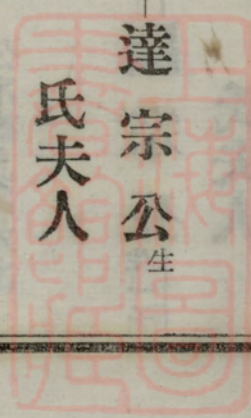 達宗公生
氏夫人